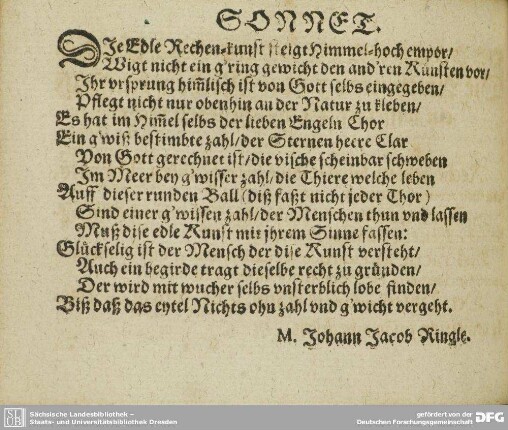 SONNET.
DJe Edle Rechen-kunst steigt Himmel-hoch empor/
Wigt nicht ein g'ring gewicht den and'ren Künsten vor/
Jhr vrsprung him̃lisch ist von Gott selbs eingegeben/
Pflegt nicht nur obenhin an der Natur zu kleben/
Es hat im Him̃el selbs der lieben Engeln Chor
Ein g'wiß bestimbte zahl/ der Sternen heere Clar
Von Gott gerechnet ist/ die vische scheinbar schweben
Jm Meer bey g'wisser zahl/ die Thiere welche leben
Auff dieser runden Ball (diß faßt nicht jeder Thor)
Sind einer g'wissen zahl/ der Menschen thun vnd lassen
Muß dise edle Kunst mit jhrem Sinne fassen:
Glückselig ist der Mensch der dise Kunst versteht/
Auch ein begirde tragt dieselbe recht zu gründen/
Der wird mit wucher selbs vnsterblich lobe finden/
Biß daß das eytel Nichts ohn zahl vnd g'wicht vergeht.
M. Johann Jacob Ringle.
SLUB
Sächsische Landesbibliothek –
Staats- und Universitätsbibliothek Dresden
gefördert von der
Deutschen Forschungsgemeinschaft
DFG